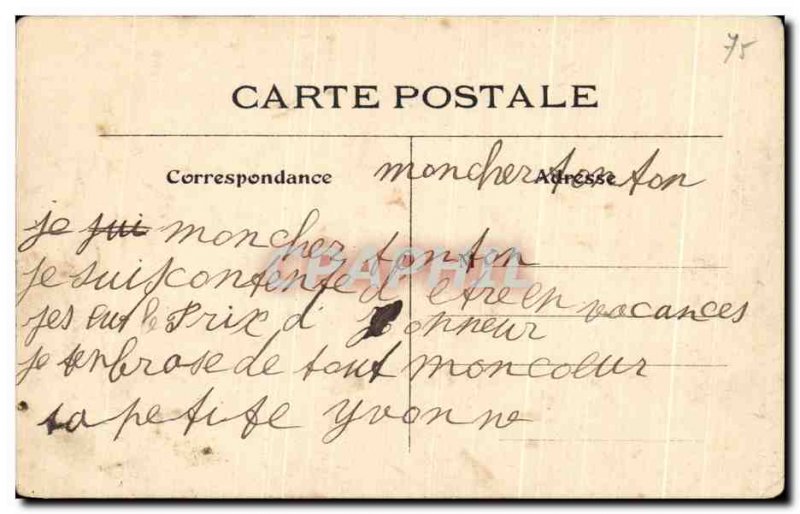 75
CARTE POSTALE
Correspondance Adresse
moncher tonton
je jui moncher tonton
je suis contente d etre en vacances
jes eut le Prix d'onneur
je tenbrase de tout moncoeur
ta petite yvonne
CPAPHIL